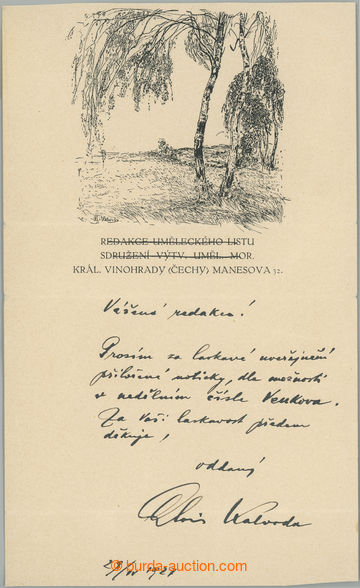 REDAKCE UMĚLECKÉHO LISTU
SDRUŽENÍ VÝTV. UMĚL. MOR.
KRÁL. VINOHRADY (ČECHY) MANESOVA 32.
Vážená redakce!
Prosím za laskavé uveřejnění
přiložené notičky, dle možnosti
v nedělním čísle Venkova.
Za Vaši laskavost předem
děkuje,
oddaný
Alois Kalvoda
1921
burda-auction.com